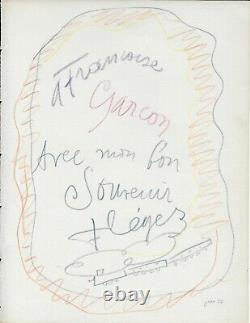 à Françoise
Garçon
Avec mon bon
Souvenir
FLéger
ebay